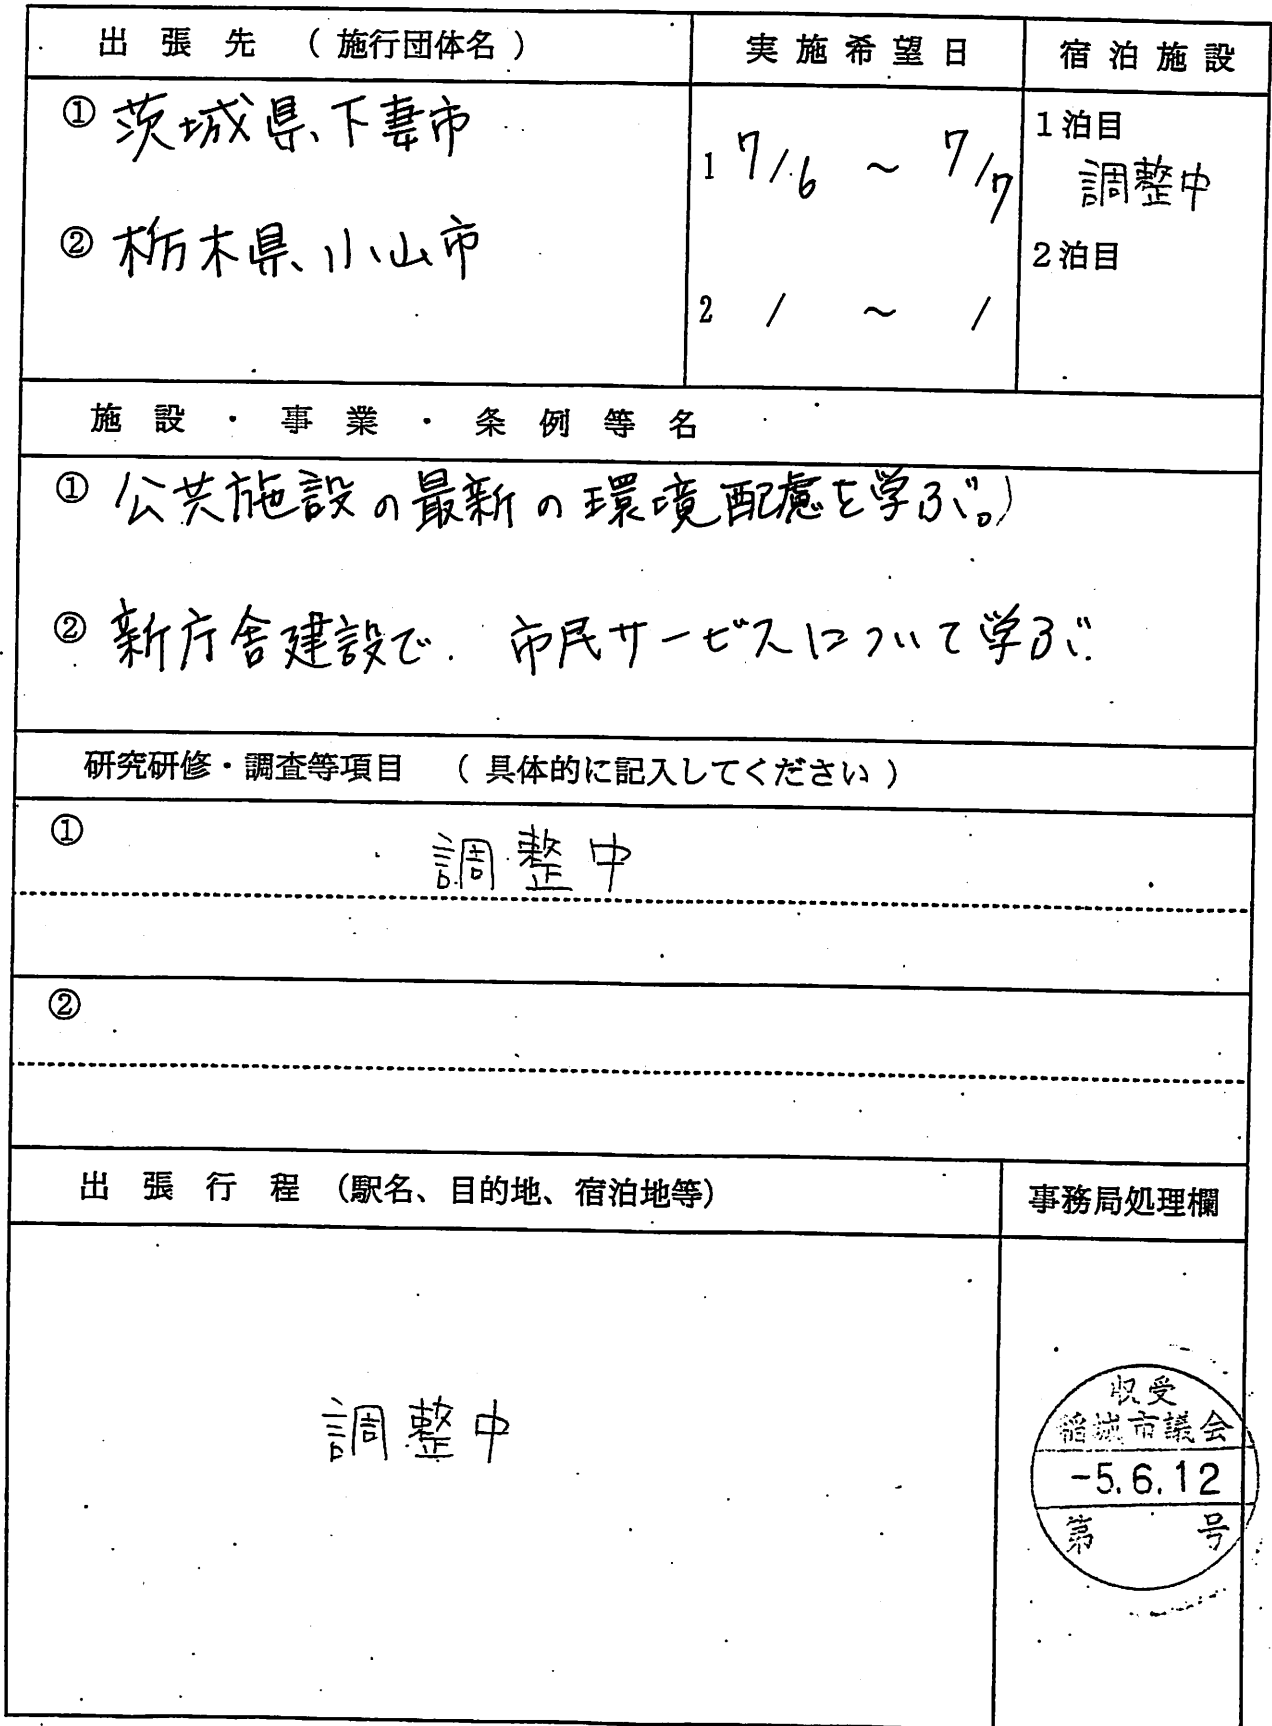 出張先（施行団体名） 実施希望日 宿泊施設
① 茨城県、下妻市
1 7/6 ～ 7/7
1泊目
調整中
② 栃木県、小山市
2 / ～ /
2泊目
施設・事業・条例等名
① 公共施設の最新の環境配慮を学ぶ。)
② 新庁舎建設で. 市民サービスについて学ぶ.
研究研修・調査等項目 （具体的に記入してください）
① 調整中
②
出張行程（駅名、目的地、宿泊地等） 事務局処理欄
調整中
収受
稲城市議会
-5.6.12
第 号